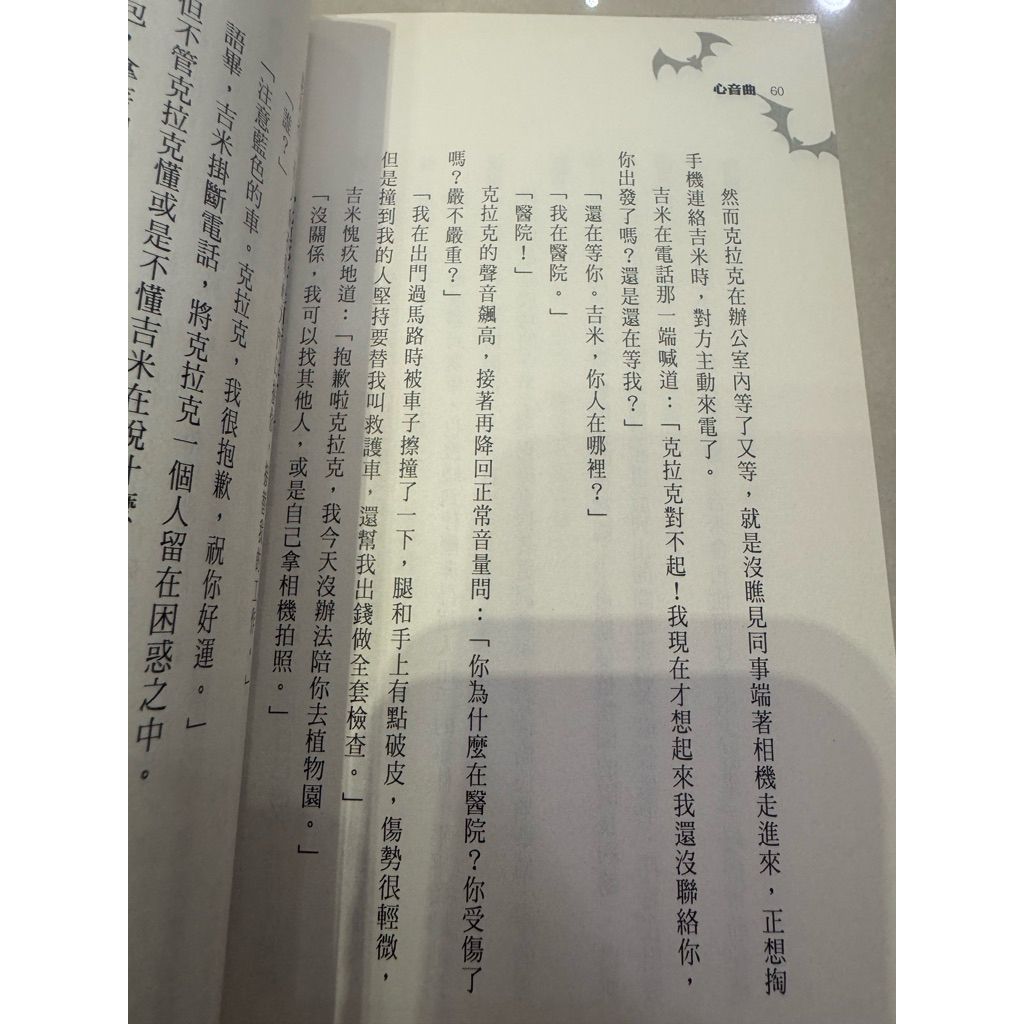 心音曲 60
然而克拉克在辦公室內等了又等，就是沒瞧見同事端著相機走進來，正想掏
手機連絡吉米時，對方主動來電了。
吉米在電話那一端喊道：「克拉克對不起！我現在才想起來我還沒聯絡你，
你出發了嗎？還是還在等我？」
「還在等你。吉米，你人在哪裡？」
「我在醫院。」
「醫院！」
克拉克的聲音飆高，接著再降回正常音量問：「你為什麼在醫院？你受傷了
嗎？嚴不嚴重？」
「我在出門過馬路時被車子擦撞了一下，腿和手上有點破皮，傷勢很輕微，
但是撞到我的人堅持要替我叫救護車，還幫我出錢做全套檢查。」
吉米愧疚地道：「抱歉啦克拉克，我今天沒辦法陪你去植物園。」
「沒關係，我可以找其他人，或是自己拿相機拍照。」
「誰？」
「注意藍色的車。克拉克，我很抱歉，祝你好運。」
語畢，吉米掛斷電話，將克拉克一個人留在困惑之中。
但不管克拉克懂或是不懂吉米在說什麼